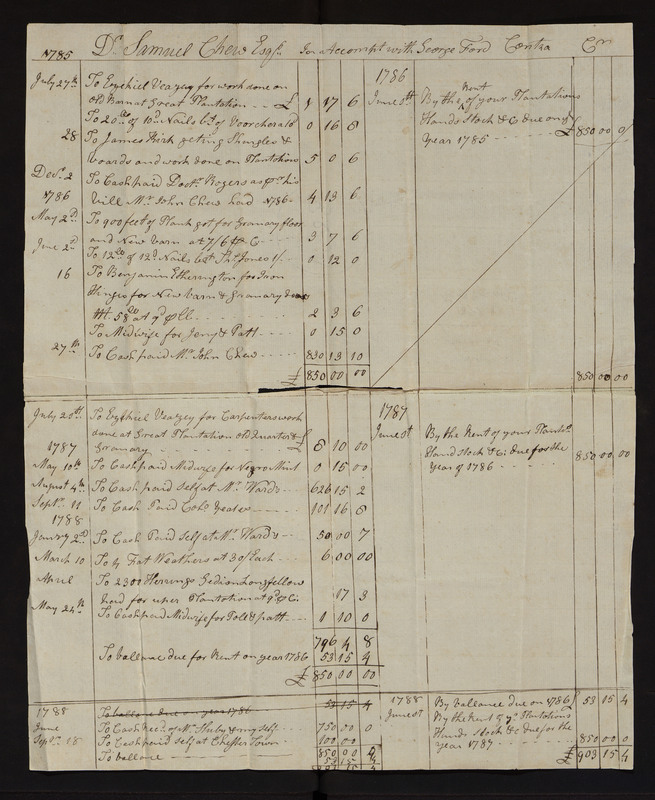 1785 Dr. Samuel Chew Esqr. In Accompt with George Ford Contra Cr.
July 27th To Ezekiel Veazey for work done on
old Barn at Great Plantation - - £ 1 17 6
To 20 lb of 10d Nails bt of Voorcherald 0 16 8
28 To James Kirk geting Shingles &
boards and work done on Plantations 5 0 6
Decr. 2 To Cash paid Doctr. Rogers as pr his
1786 Will Mr. John Chew had 1786 - 4 13 6
May 2d To 900 feet of Plank got for Granary floor
and New barn at 7/6 pr C - - 3 7 6
June 2d To 12 lb of 12d Nails bt Ths. Jones 1/. - - 0 12 0
16 To Benjamin Etherington for Iron
Hinges for New barn & Granary doors
Wt. 58 lb at 9d pr lb - - - - 2 3 6
To Midwife for Jeny & Patt - - - 0 15 0
27th To Cash paid Mr. John Chew - - - - 830 13 10
£ 850 00 00
1786
June 1st By the Rent of your Plantations
Hands Stock &c due on ye
Year 1785 - - - - £ 850 00 0
850 00 00
July 20th To Ezekiel Veazey for Carpenters work
done at Great Plantation old quarter &
1787 Granary - - - - £ 8 10 00
May 10th To Cash paid Midwife for Negro Mint 0 15 00
August 4th To Cash paid self at Mr. Wards - - 626 15 2
Septr. 11 To Cash Paid Colo Yeates - - - - 101 16 8
1788
Janry 2d To Cash Paid self at Mr. Wards - - 50 00 7
March 10 To 4 Fat Weathers at 30/ Each - - - 6 00 00
April To 2300 Herrings Gedion Longfellow
had for uper Plantation at 9d pr C. 17 3
May 24th To Cash paid Midwife for Poll & patt - - - 1 10 0
796 4 8
To ballance due for Rent on year 1786 53 15 4
£ 850 00 00
1787
June 1st By the Rent of your Plantns.
Hand stock &c: due for the
Year of 1786 - - - - 850 00 00
1788 To ballance due on year 1786 53 15 4
June To Cash Recd. of Mr. Sluby & my self - - 750 00 0
Septr. 18 To Cash paid self at Chester Town 100 00
To ballance - - - - 850 00 0
53 15 4
903 15 4
1788 By ballance due on 1786 53 15 4
June 1st By the Rent of yr. Plantations
Hands stock &c due for the
Year 1787 - - - - 850 00 0
£ 903 15 4